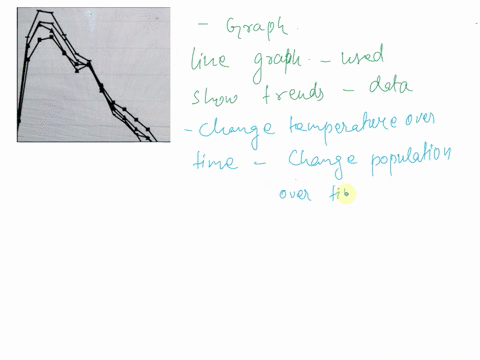 - Graph.
line graph - used
show trends - data
- Change temperature over
time - Change population
over ti